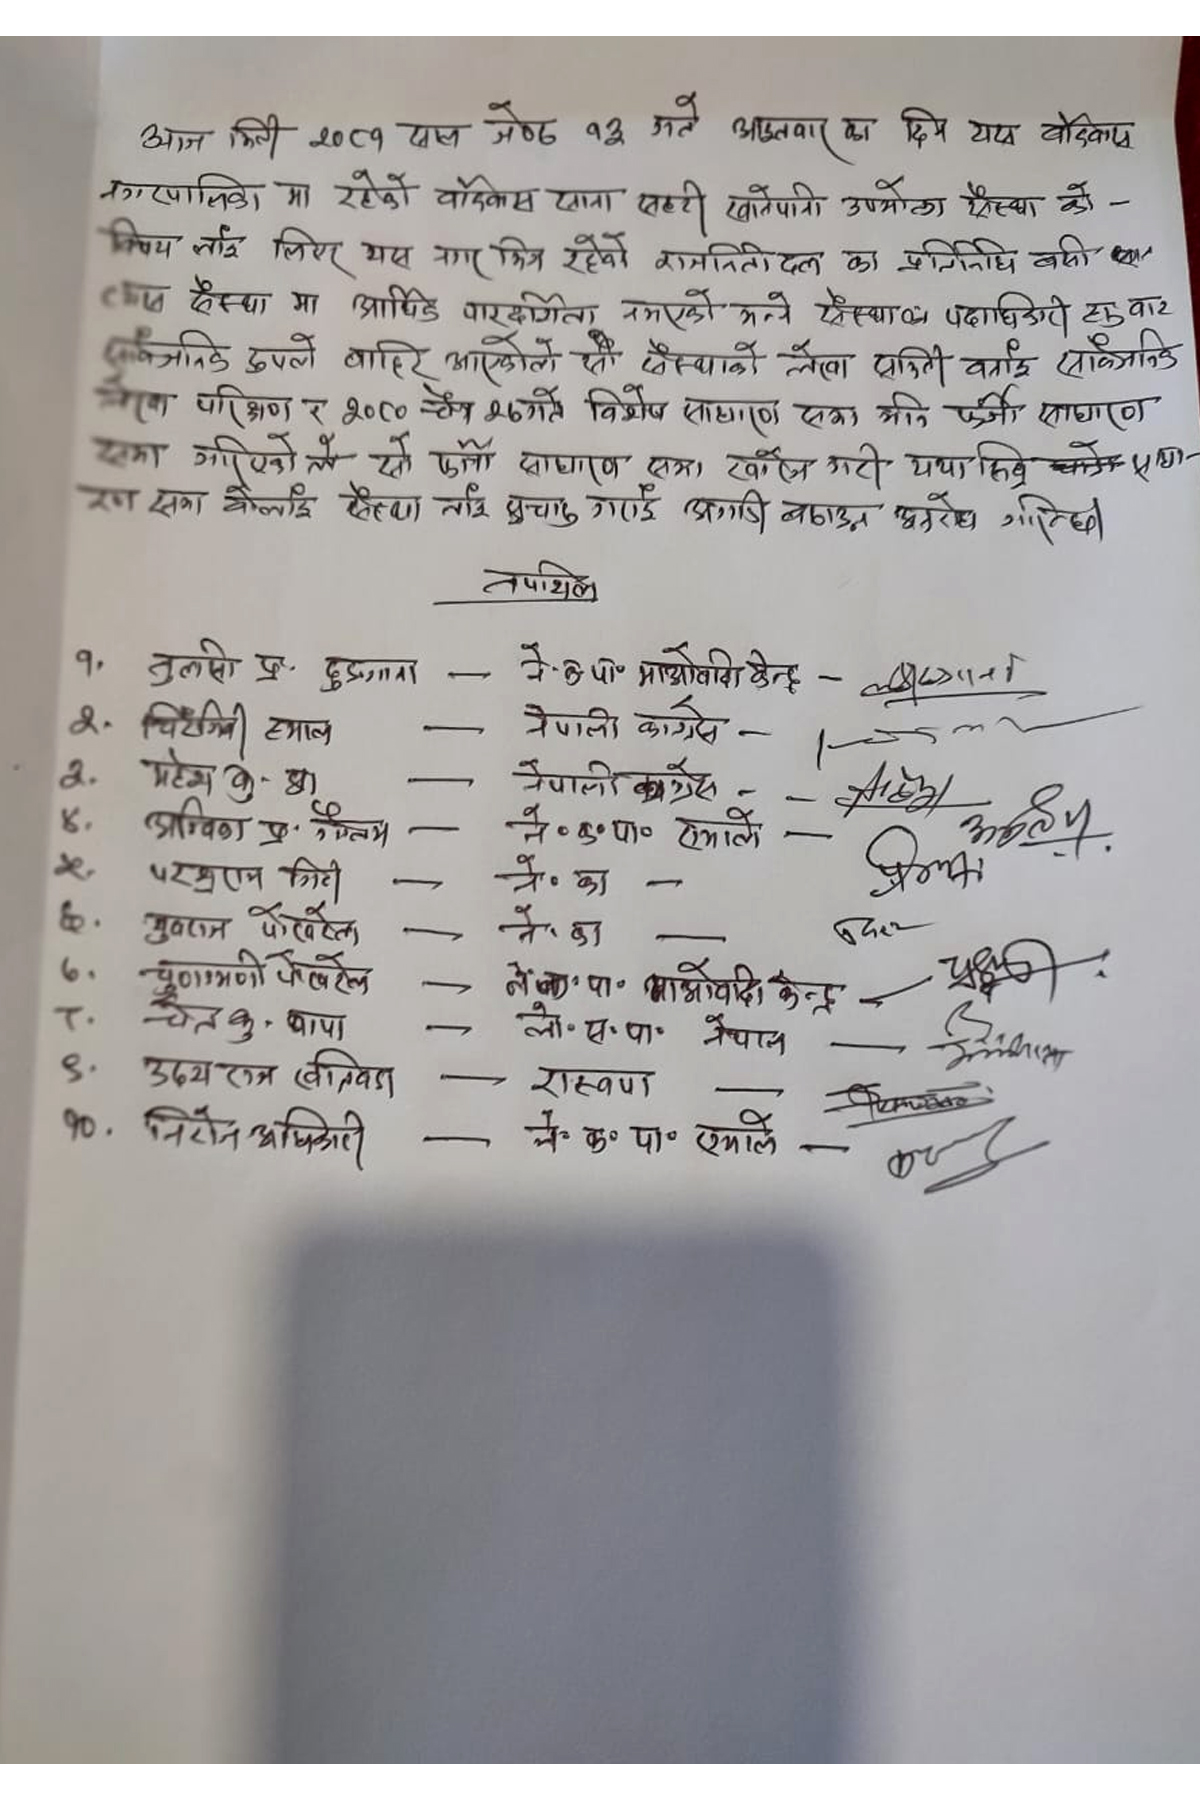 आज मिती २०८१ साल जेष्ठ १३ गते आइतवार का दिन यस बाँदिकास
नगरपालिका मा रहेको बाँदिकास साना सहरी खानेपानी उपभोक्ता संस्था को -
विषय लाई लिएर यस नगर भित्र रहेको राजनितीदल का प्रतिनिधि बसी
संस्था मा आर्थिक पारदर्शिता नभएको भन्ने संस्थाका पदाधिकारी हरु बाट
सार्वजनिक रुपले बाहिर आएकोले सो संस्थाको लेखा समिती बनाई सार्वजनिक
लेखा परिक्षण र २०८० चैत्र २७गते विशेष साधारण सभा भनि फर्जी साधारण
सभा गरिएको ले सो फर्जी साधारण सभा खारेज गरी यथा सिघ्र साधा-
रण सभा बोलाई संस्था लाई सुचारु गराई अगाडी बढाउन अनुरोध गरिन्छ।
तपशिल
१. तुलसी प्र. ढुङ्गाना — ने.क.पा. माओवादी केन्द्र -
२. चिरंजिवी हमाल — नेपाली काग्रेस -
३. महेश कु. — नेपाली काग्रेस - -
४. अम्बिका प्र. गौतम — ने.क.पा. एमाले —
५. परशुराम गिरी — ने. का —
६. युवराज पोखरेल — ने. का —
७. चुणामणी पोखरेल — ने.क.पा. माओवादी केन्द्र —
८. चेत कु. थापा — लो.स.पा. नेपाल —
९. उदय राज खतिवडा — रास्वपा —
१०. निरोज अधिकारी — ने. क. पा. एमाले —